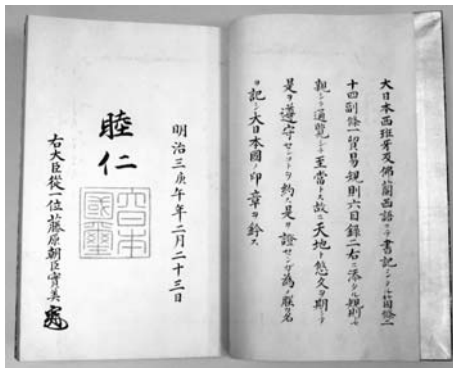 大日本西班牙及佛蘭西語ニテ書記シタル箇條二
十四副條一貿易規則六目錄二右ニ添タル規則ヲ
親シク通覧シテ至當トス故ニ天地ト悠久ヲ期シテ
是ヲ遵守センヿヲ約ス是ヲ證センガ為メ朕名
ヲ記シ大日本國ノ印章ヲ鈐ス
明治三庚午年二月二十三日
睦仁
大日本國璽
右大臣從一位藤原朝臣實美